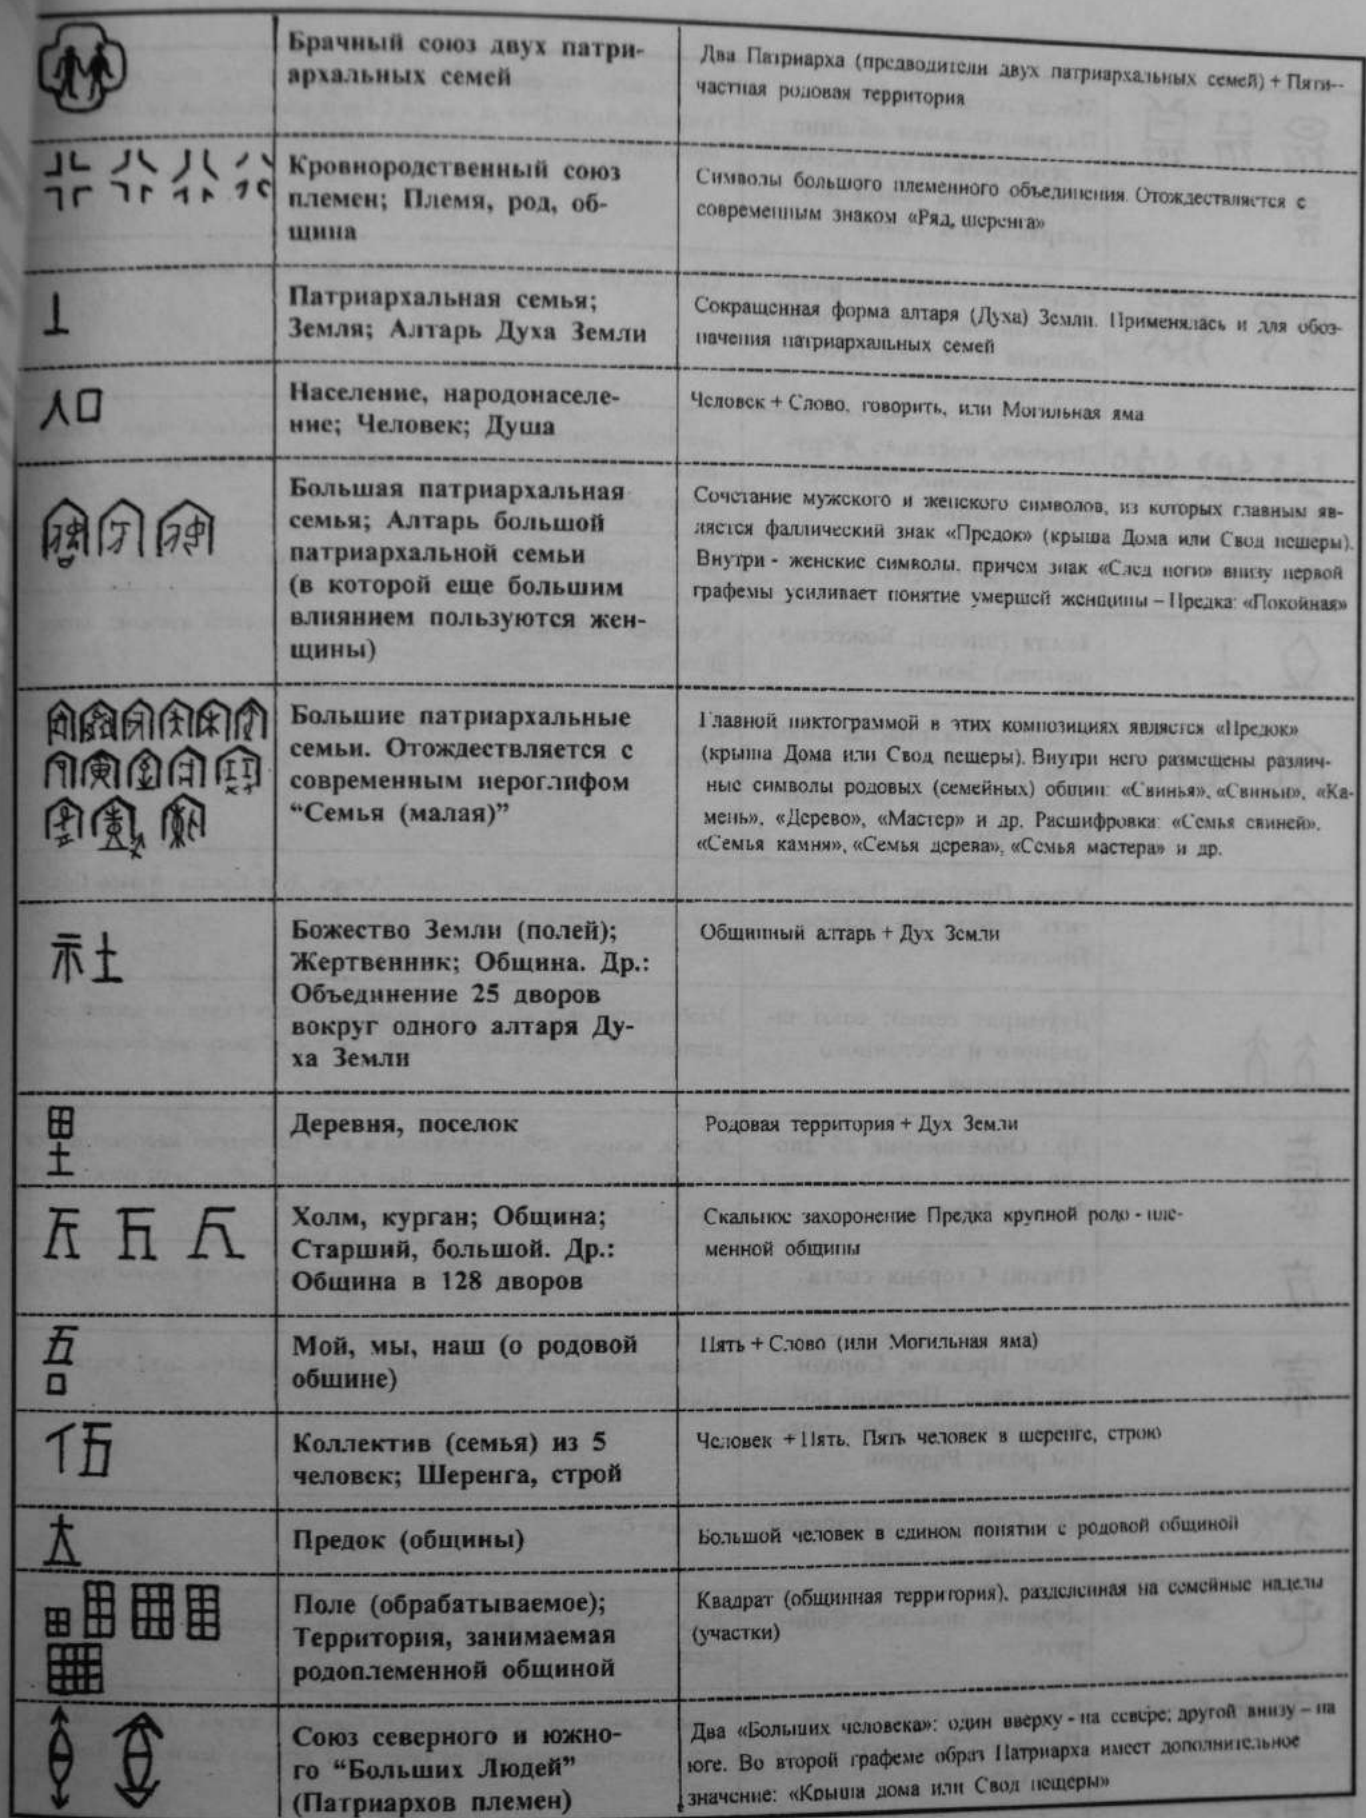 Брачный союз двух патри-
архальных семей
Два Патриарха (предводители двух патриархальных семей) + Пяти-
частная родовая территория
Кровнородственный союз
племен; Племя, род, об-
щина
Символы большого племенного объединения. Отождествляется с
современным знаком «Ряд, шеренга»
Патриархальная семья;
Земля; Алтарь Духа Земли
Сокращенная форма алтаря (Духа) Земли. Применялась и для обоз-
начения патриархальных семей
人口
Население, народонаселе-
ние; Человек; Душа
Человек + Слово, говорить, или Могильная яма
Большая патриархальная
семья; Алтарь большой
патриархальной семьи
(в которой еще большим
влиянием пользуются жен-
щины)
Сочетание мужского и женского символов, из которых главным яв-
ляется фаллический знак «Предок» (крыша Дома или Свод пещеры).
Внутри - женские символы, причем знак «След ноги» внизу первой
графемы усиливает понятие умершей женщины – Предка: «Покойная»
Большие патриархальные
семьи. Отождествляется с
современным иероглифом
“Семья (малая)”
Главной пиктограммой в этих композициях является «Предок»
(крыша Дома или Свод пещеры). Внутри него размещены различ-
ные символы родовых (семейных) общин: «Свинья», «Свиньи», «Ка-
мень», «Дерево», «Мастер» и др. Расшифровка: «Семья свиней»,
«Семья камня», «Семья дерева», «Семья мастера» и др.
社
Божество Земли (полей);
Жертвенник; Община. Др.:
Объединение 25 дворов
вокруг одного алтаря Ду-
ха Земли
Общинный алтарь + Дух Земли
里
Деревня, поселок
Родовая территория + Дух Земли
Холм, курган; Община;
Старший, большой. Др.:
Община в 128 дворов
Скальное захоронение Предка крупной родо - пле-
менной общины
吾
Мой, мы, наш (о родовой
общине)
Пять + Слово (или Могильная яма)
伍
Коллектив (семья) из 5
человек; Шеренга, строй
Человек + Пять. Пять человек в шеренге, строю
Предок (общины)
Большой человек в едином понятии с родовой общиной
Поле (обрабатываемое);
Территория, занимаемая
родоплеменной общиной
Квадрат (общинная территория), разделенная на семейные наделы
(участки)
Союз северного и южно-
го “Больших Людей”
(Патриархов племен)
Два «Больших человека»: один вверху - на севере; другой внизу – на
юге. Во второй графеме образ Патриарха имеет дополнительное
значение: «Крыша дома или Свод пещеры»